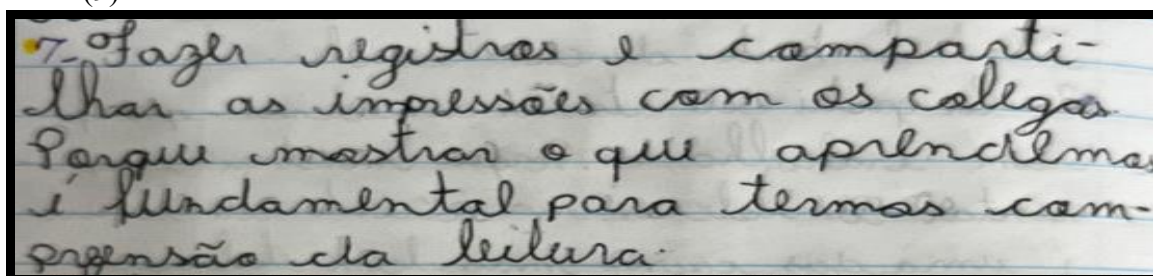 7- Fazer registros e comparti-
lhar as impressões com os colegas
Porque mostrar o que aprendemos
é fundamental para termos com-
preensão da leitura.